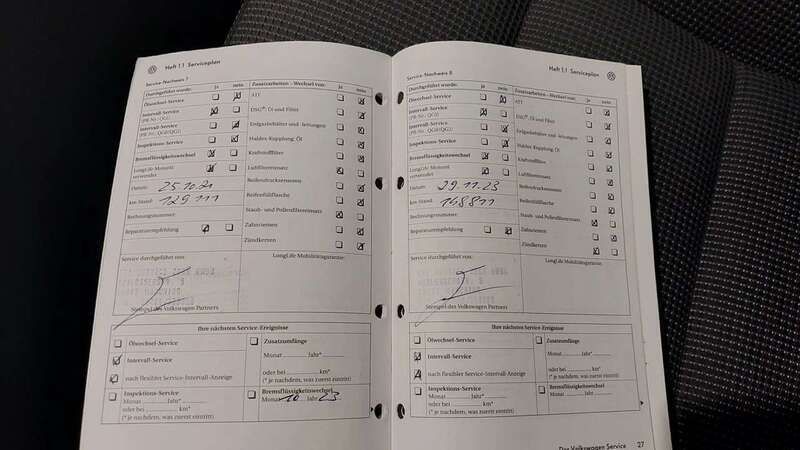 Heft 1.1 Serviceplan
Service-Nachweis 7
Durchgeführt wurde: ja nein
Ölwechsel-Service
Intervall-Service
(PR-Nr.: QG1)
Intervall-Service
(PR-Nr.: QG0/QG2)
Inspektions-Service
Bremsflüssigkeitswechsel
LongLife Motoröl
verwendet
Datum:
km-Stand: 129111
Rechnungsnummer:
Reparaturempfehlung
Zusatzarbeiten - Wechsel von: ja nein
ATF
DSG®: Öl und Filter
Erdgasbehälter und -leitungen
Haldex-Kupplung: Öl
Kraftstofffilter
Luftfiltereinsatz
Reifendrucksensoren
Reifenfüllflasche
Staub- und Pollenfiltereinsatz
Zahnriemen
Zündkerzen
Service durchgeführt von:
LongLife Mobilitätsgarantie:
Stempel des Volkswagen Partners
Ihre nächsten Service-Ereignisse
Ölwechsel-Service
Intervall-Service
nach flexibler Service-Intervall-Anzeige
Inspektions-Service
Monat Jahr*
oder bei km*
(* je nachdem, was zuerst eintritt)
Zusatzumfänge
Monat Jahr*
oder bei km*
(* je nachdem, was zuerst eintritt)
Bremsflüssigkeitswechsel
Monat 10 Jahr 23
Heft 1.1 Serviceplan
Service-Nachweis 8
Durchgeführt wurde: ja nein
Ölwechsel-Service
Intervall-Service
(PR-Nr.: QG1)
Intervall-Service
(PR-Nr.: QG0/QG2)
Inspektions-Service
Bremsflüssigkeitswechsel
LongLife Motoröl
verwendet
Datum: 29.11.23
km-Stand: 148811
Rechnungsnummer:
Reparaturempfehlung
Zusatzarbeiten - Wechsel von: ja nein
ATF
DSG®: Öl und Filter
Erdgasbehälter und -leitungen
Haldex-Kupplung: Öl
Kraftstofffilter
Luftfiltereinsatz
Reifendrucksensoren
Reifenfüllflasche
Staub- und Pollenfiltereinsatz
Zahnriemen
Zündkerzen
Service durchgeführt von:
LongLife Mobilitätsgarantie:
Stempel des Volkswagen Partners
Ihre nächsten Service-Ereignisse
Ölwechsel-Service
Intervall-Service
nach flexibler Service-Intervall-Anzeige
Inspektions-Service
Monat Jahr*
oder bei km*
(* je nachdem, was zuerst eintritt)
Zusatzumfänge
Monat Jahr*
oder bei km*
(* je nachdem, was zuerst eintritt)
Bremsflüssigkeitswechsel
Monat Jahr
Der Volkswagen Service 27